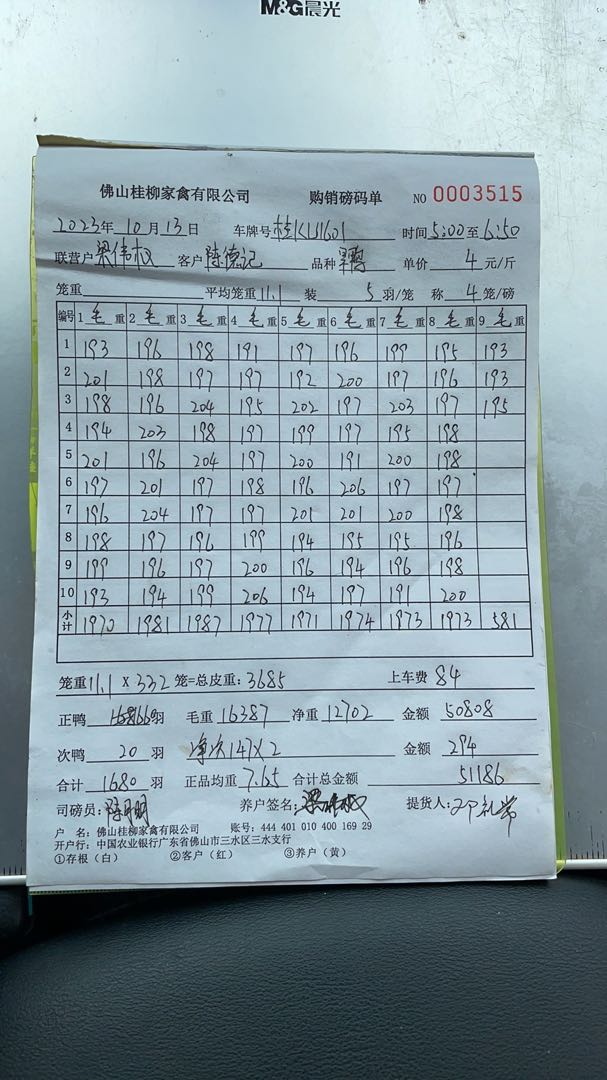 M&G晨光
佛山桂柳家禽有限公司 购销磅码单 NO 0003515
2023年 10月 13日 车牌号 桂K 时间 5:00 至 6:50
联营户 梁伟权 客户 陈德记 品种 单价 4 元/斤
笼重 平均笼重 11.1 装 5 羽/笼 称 4 笼/磅
编号 1 毛重 2 毛重 3 毛重 4 毛重 5 毛重 6 毛重 7 毛重 8 毛重 9 毛重
1 193 196 198 191 197 196 199 195 193
2 201 198 197 197 192 200 197 196 193
3 198 196 204 195 202 197 203 197 195
4 194 203 198 197 199 197 195 198
5 201 196 204 197 200 191 200 198
6 197 201 197 198 196 206 197 197
7 196 204 197 197 201 201 200 198
8 198 197 196 199 194 195 195 196
9 199 196 197 200 196 194 196 198
10 193 194 199 206 194 197 191 200
小计 1970 1981 1987 1977 1971 1974 1973 1973 581
笼重 11.1 X 332 笼=总皮重: 3685 上车费 84
正鸭 1660 羽 毛重 16387 净重 12702 金额 50808
次鸭 20 羽 净次147X2 金额 294
合计 1680 羽 正品均重 7.65 合计总金额 51186
司磅员: 养户签名: 梁伟权 提货人:
户 名: 佛山桂柳家禽有限公司 账号: 444 401 010 400 169 29
开户行: 中国农业银行广东省佛山市三水区三水支行
①存根(白) ②客户(红) ③养户(黄)